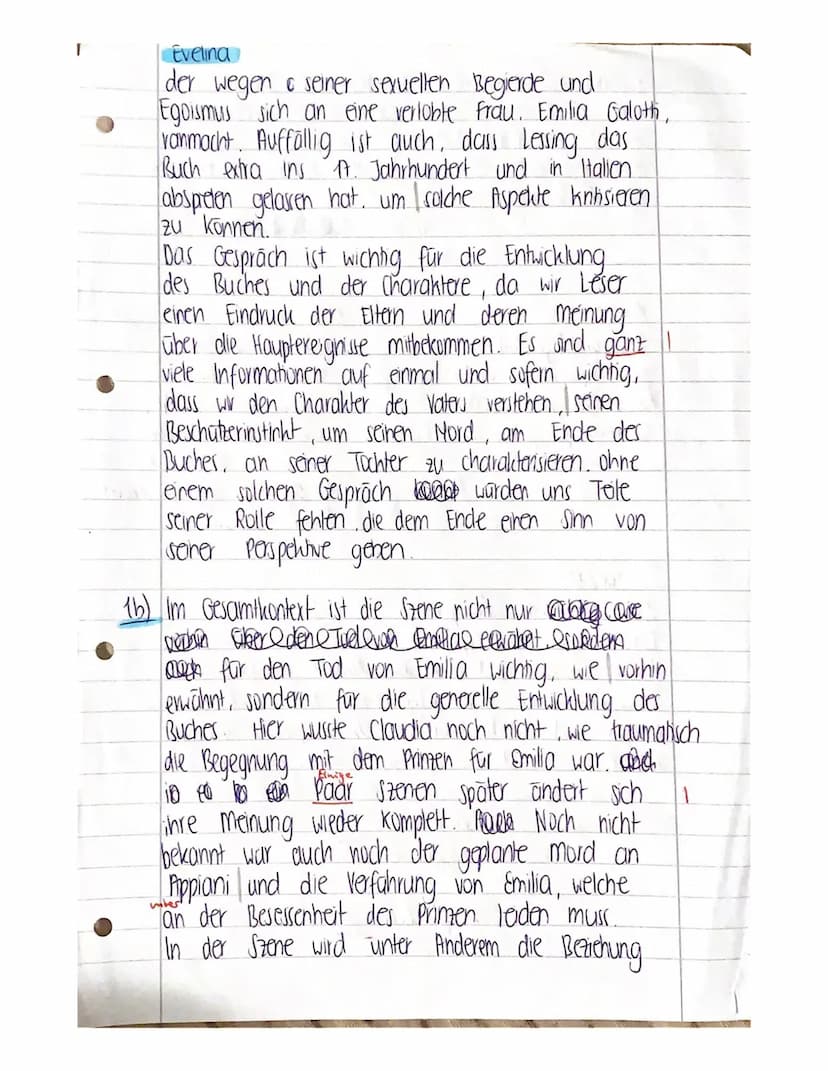 Evelina
der wegen seiner sexuellen Begierde und
Egoismus sich an eine verlobte Frau, Emilia Galotti,
ranmacht. Auffällig ist auch, dass Lessing das
Buch extra ins 17. Jahrhundert und in Italien
abspielen gelassen hat, um solche Aspekte kritisieren
zu können.
Das Gespräch ist wichtig für die Entwicklung
des Buches und der Charaktere, da wir Leser
einen Eindruck der Eltern und deren Meinung
über die Hauptereignisse mitbekommen. Es sind ganz |
viele Informationen auf einmal und sofern wichtig,
dass wir den Charakter des Vaters verstehen, seinen
Beschützerinstinkt, um seinen Mord, am Ende des
Buches, an seiner Tochter zu charakterisieren. Ohne
einem solchen Gespräch würden uns Teile
seiner Rolle fehlen, die dem Ende einen Sinn von
seiner Perspektive geben.
1b) Im Gesamtkontext ist die Szene nicht nur
für den Tod von Emilia wichtig, wie vorhin
erwähnt, sondern für die generelle Entwicklung des
Buches. Hier wusste Claudia noch nicht, wie traumatisch
die Begegnung mit dem Prinzen für Emilia war.
Einige
Paar Szenen später ändert sich |
ihre Meinung wieder komplett. Noch nicht
bekannt war auch noch der geplante Mord an
Appiani und die Verfahrung von Emilia, welche
unter
an der Besessenheit des Prinzen leiden muss.
In der Szene wird unter Anderem die Beziehung